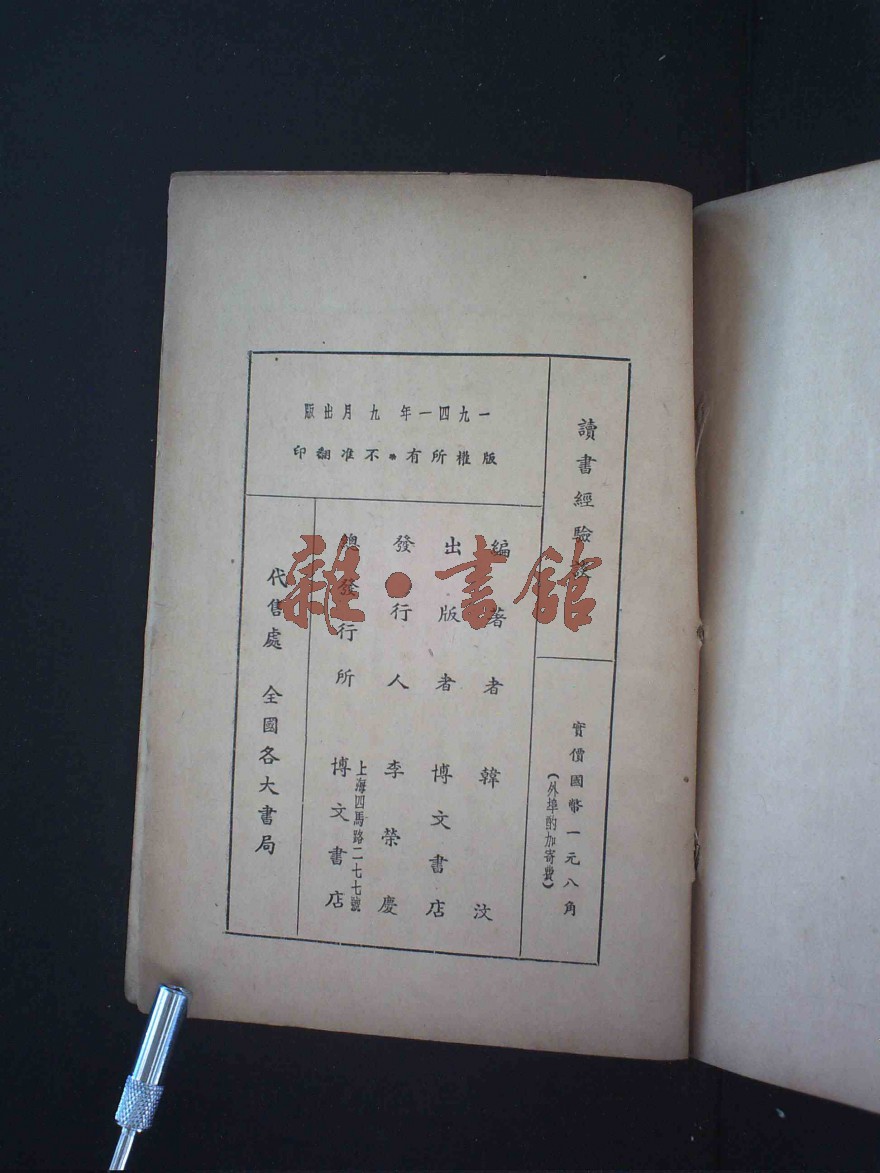 讀書經驗談
實價國幣一元八角
（外埠酌加寄費）
一九四一年九月出版
版權所有·不准翻印
編著者 韓汶
出版者 博文書店
發行人 李榮慶
總發行所 博文書店
上海四馬路二七七號
代售處 全國各大書局
雜·書館